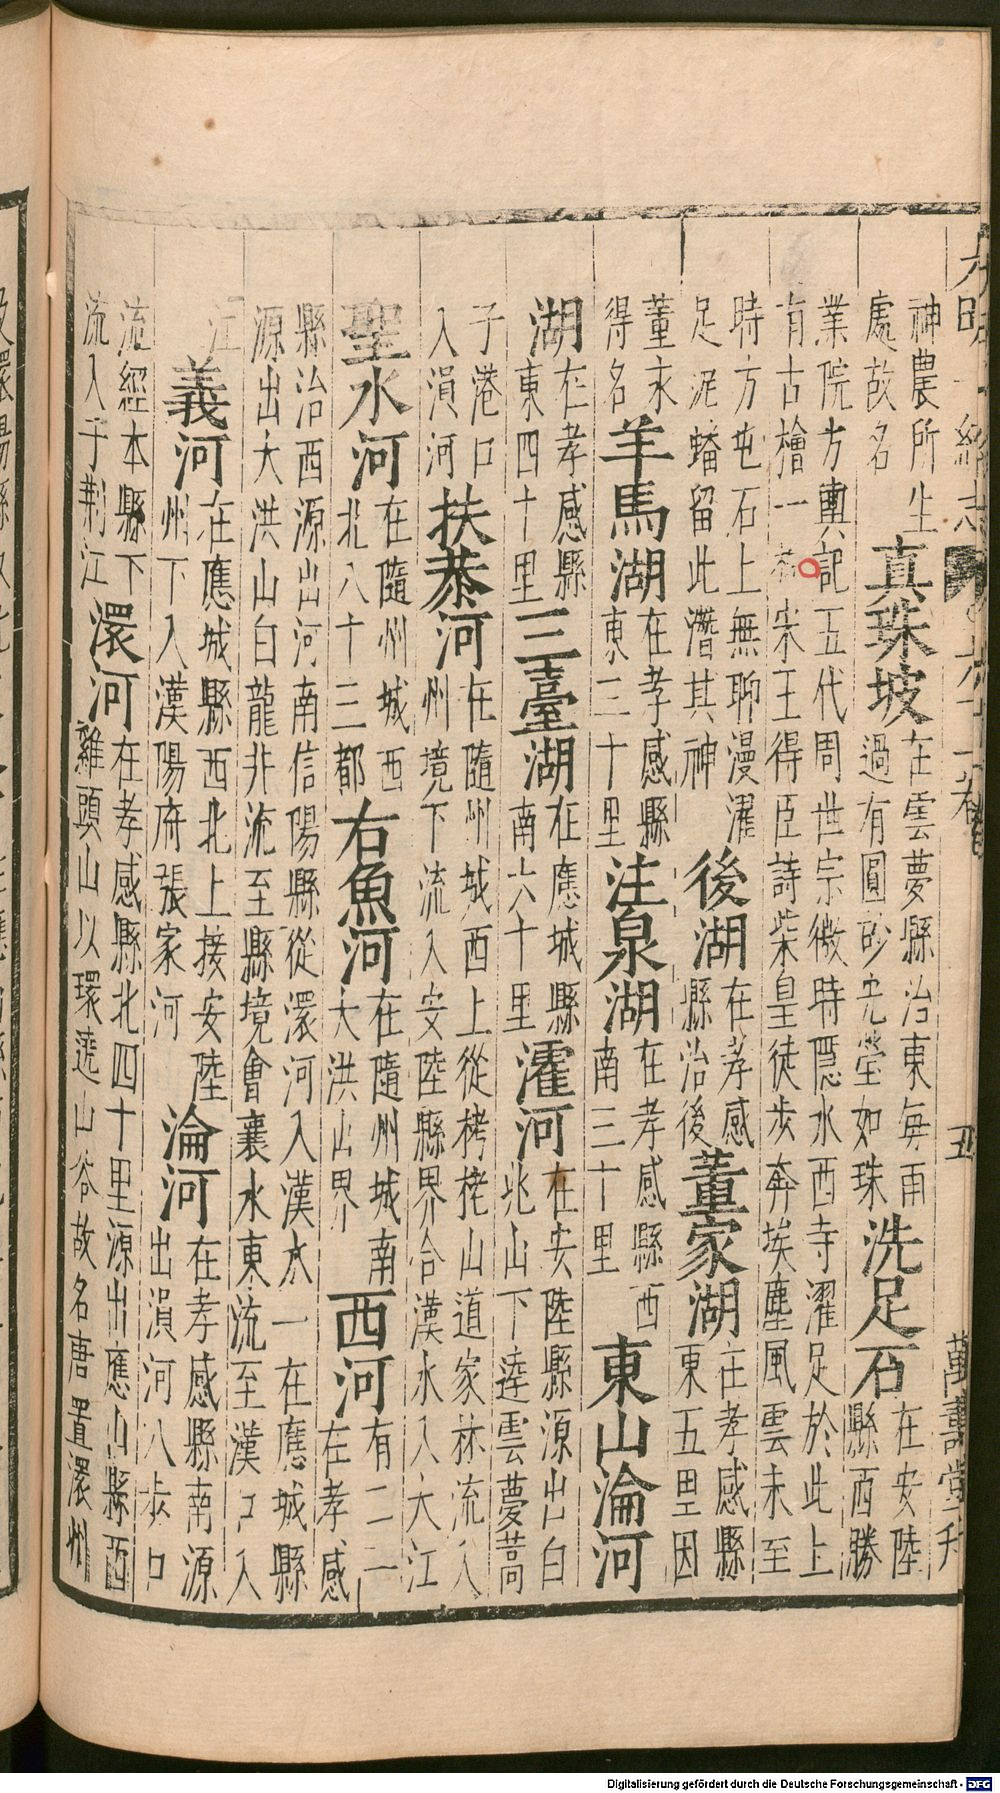 大明一統志 卷六十一 五 萬壽堂刊
神農所生
處故名
真珠坡
在雲夢縣治東每雨
過有圓砂光瑩如珠
洗足石
在安陸
縣西勝
業院方輿記五代周世宗微時隱水西寺濯足於此上
有古檜一 宋王得臣詩柴皇徒步奔埃塵風雲未至
時方屯石上無聊漫濯
足泥蟠留此濳其神
後湖
在孝感
縣治後
董家湖
在孝感縣
東五里因
董永
得名
羊馬湖
在孝感縣
東二十里
注泉湖
在孝感縣西
南三十里
東山淪河
湖
在孝感縣
東四十里
三臺湖
在應城縣
南六十里
濯河
在安陸縣源出白
兆山下逹雲夢蒿
子港口
入溳河
扶恭河
在隨州城西上從栲栳山道家林流入
州境下流入安陸縣界合漢水入大江
聖水河
在隨州城西
北八十三都
右魚河
在隨州城南
大洪山界
西河
有二一
在孝感
縣治西源出河南信陽縣從澴河入漢水一在應城縣
源出大洪山白龍非流至縣境會襄水東流至漢口入
江
義河
在應城縣西北上接安陸
州下入漢陽府張家河
淪河
在孝感縣南源
出溳河八步口
流經本縣下
流入于荆江
澴河
在孝感縣北四十里源出應山縣西
雞頭山以環遶山谷故名唐置澴州
Digitalisierung gefördert durch die Deutsche Forschungsgemeinschaft - DFG